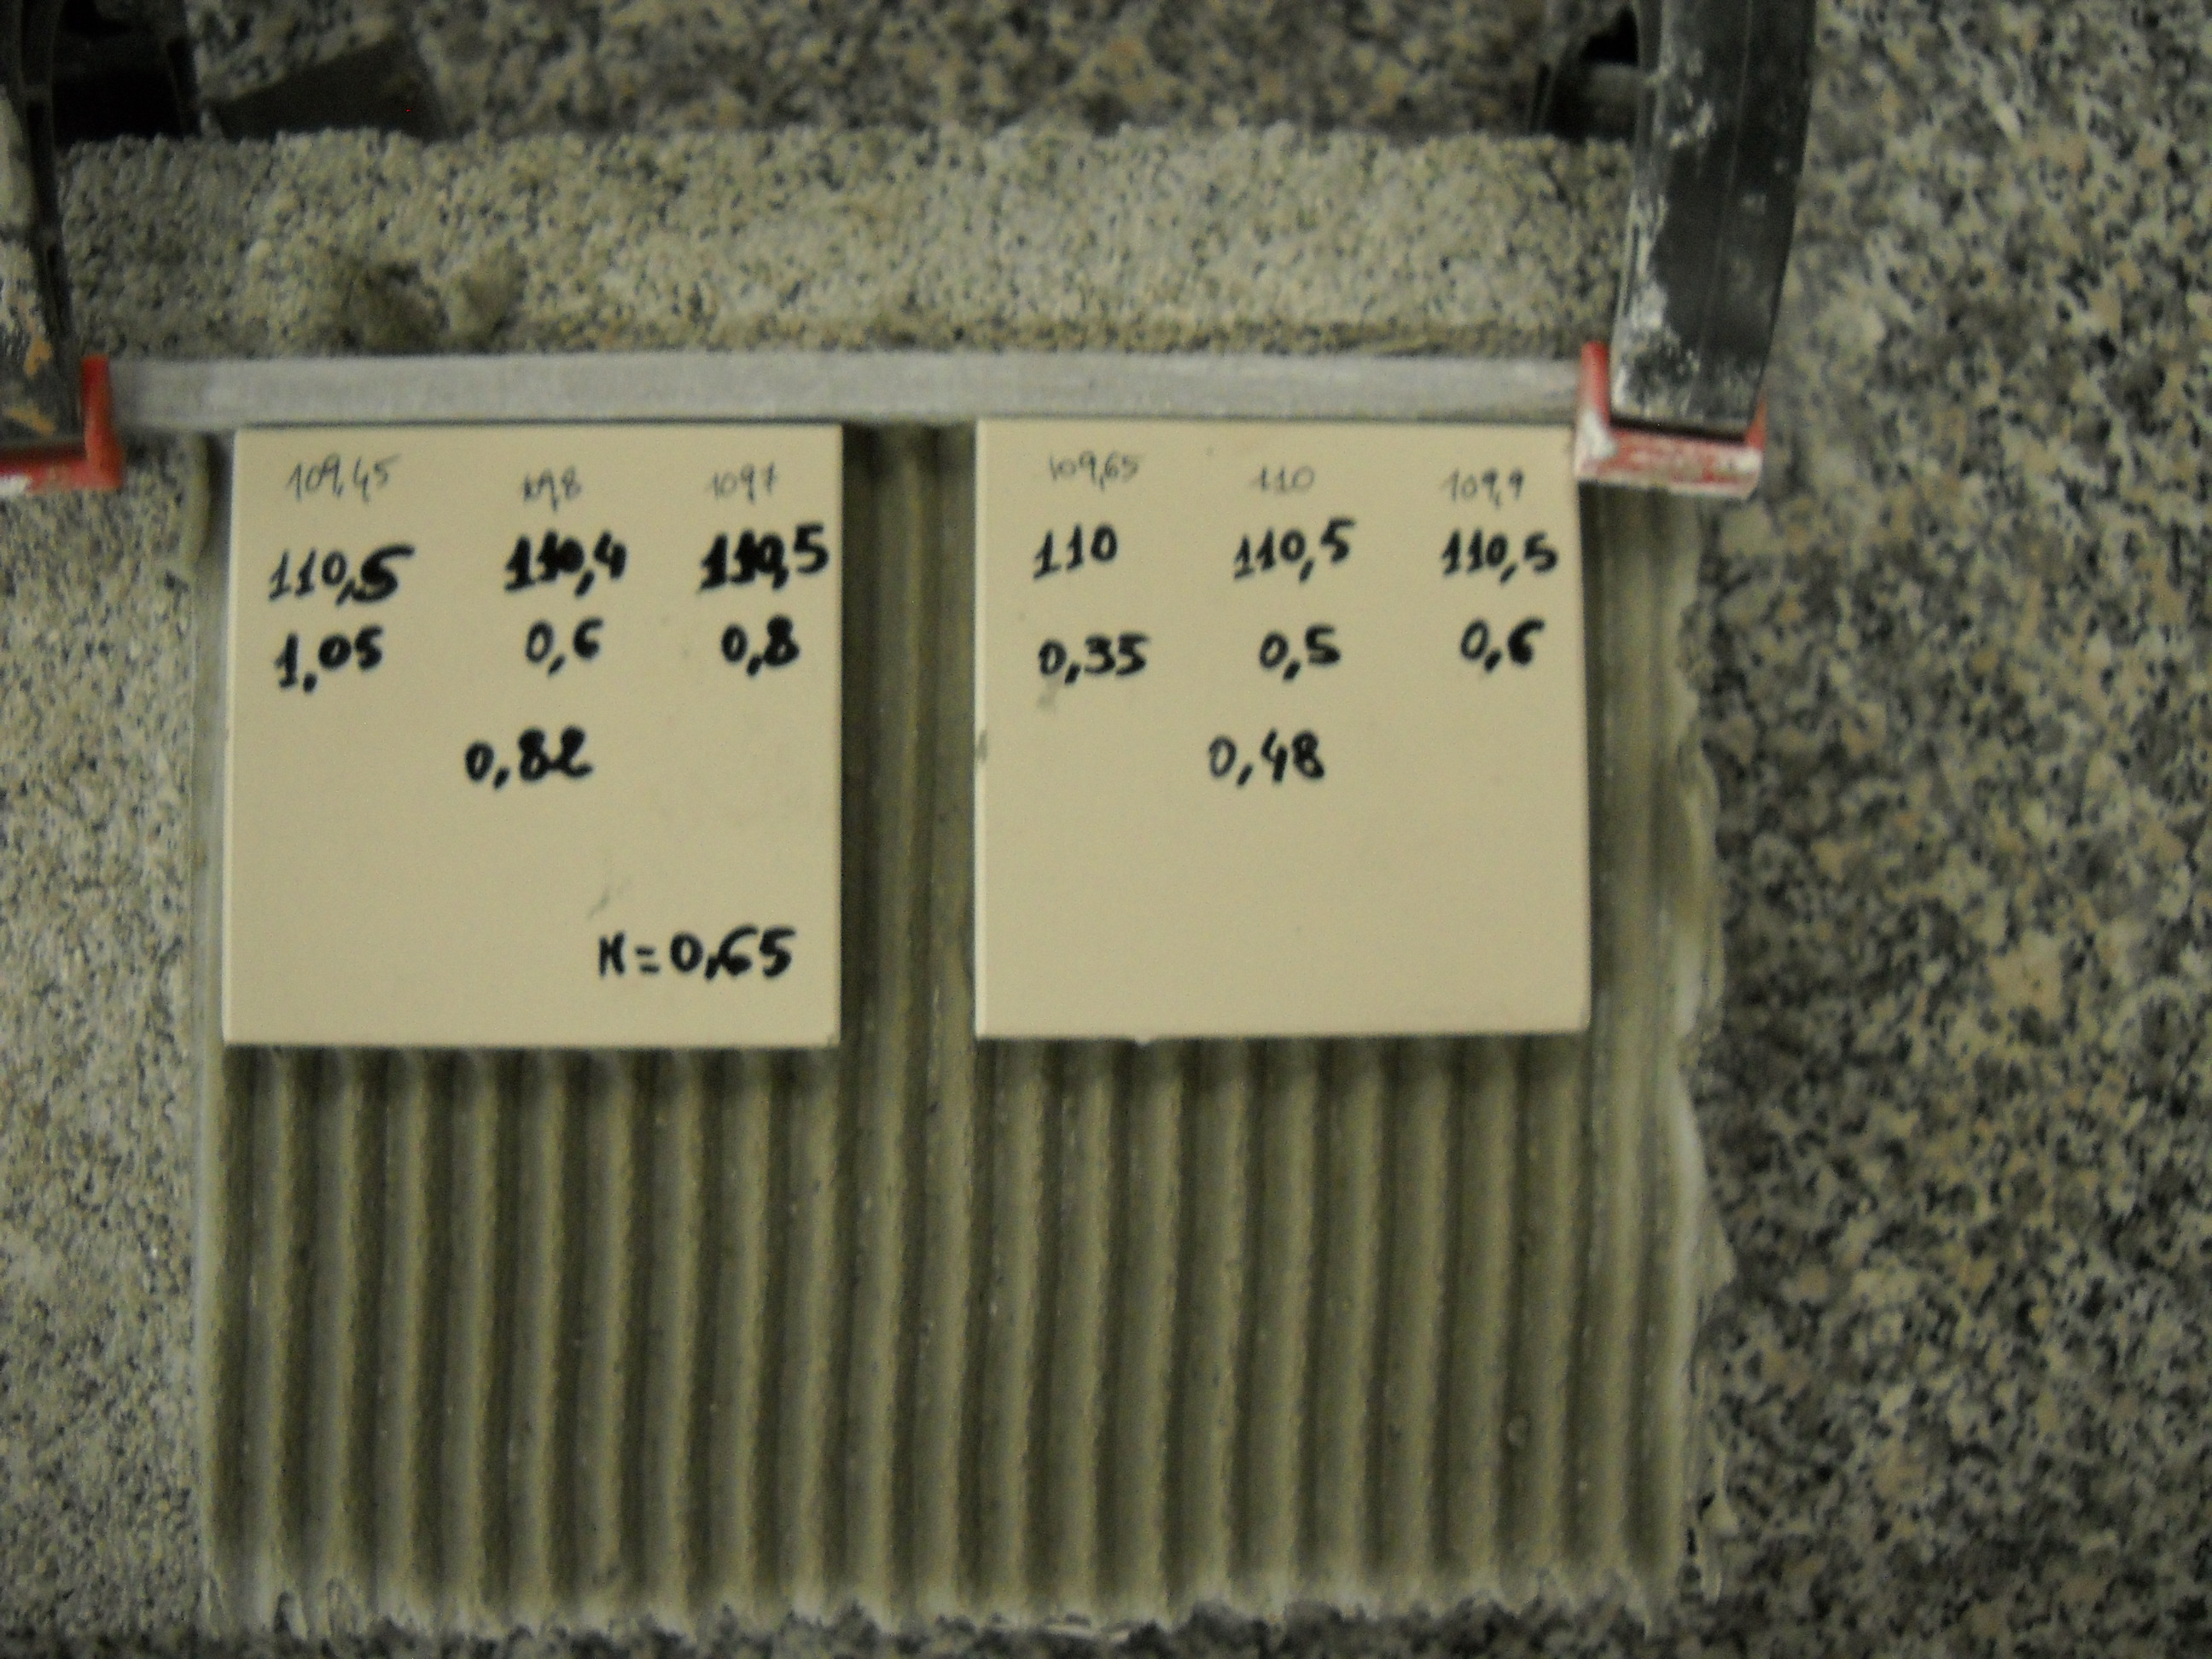 109,45 109,8 109,7
110,5 110,4 110,5
1,05 0,6 0,8
0,82
M=0,65
109,65 110 109,9
110 110,5 110,5
0,35 0,5 0,6
0,48